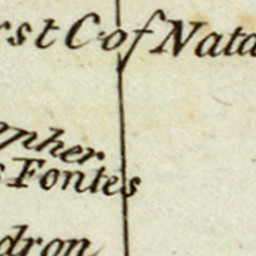 rst C. of Nata
epher
s Fontes
dron